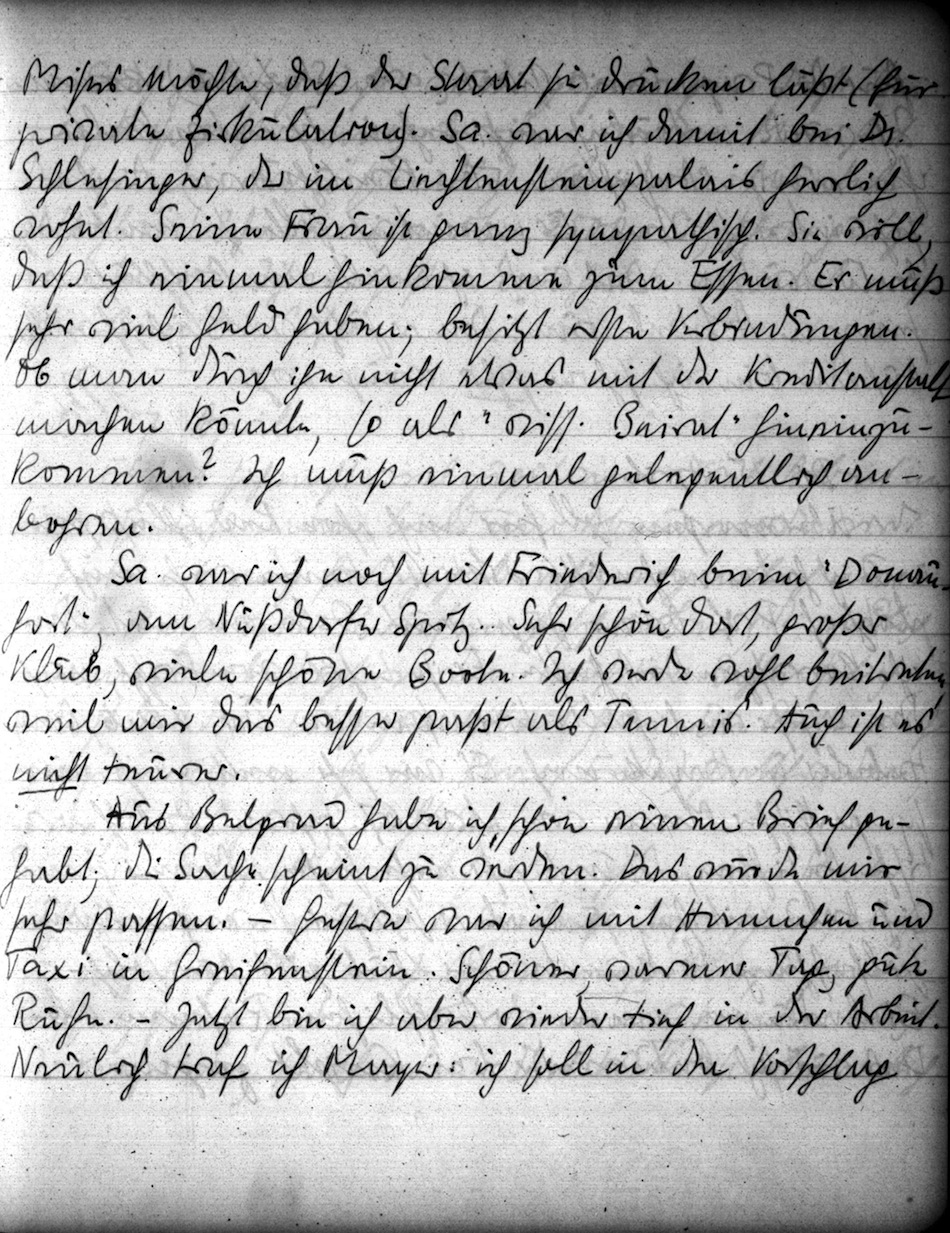 Mises möchte, daß der Staat sie drucken läßt (für
private Zirkulation). Sa. war ich damit bei Dr.
Schlesinger, der im Liechtensteinpalais herrlich
wohnt. Seine Frau ist ganz sympathisch. Sie will,
daß ich einmal hinkomme zum Essen. Er muß
sehr viel Geld haben; besitzt erste Verbindungen.
Ob man durch ihn nicht etwas mit der Kreditanstalt
machen könnte, so als "wiss. Beirat" hineinzu-
kommen? Ich muß einmal gelegentlich an-
bohren.
Sa. war ich noch mit Friederich beim "Donau-
hort", am Nußdorfer Spitz. Sehr schön dort, großer
Klub, viele schöne Boote. Ich werde wohl beitreten,
weil mir das besser paßt als Tennis. Auch ist es
nicht teurer.
Aus Belgrad habe ich schon einen Brief ge-
habt; die Sache scheint zu werden. Das würde mir
sehr passen. – Gestern war ich mit Hannchen und
Taxi in Greifenstein. Schöner, warmer Tag, gute
Ruhe. – Jetzt bin ich aber wieder tief in der Arbeit.
Neulich traf ich Mayer: ich soll in den Vorschlag